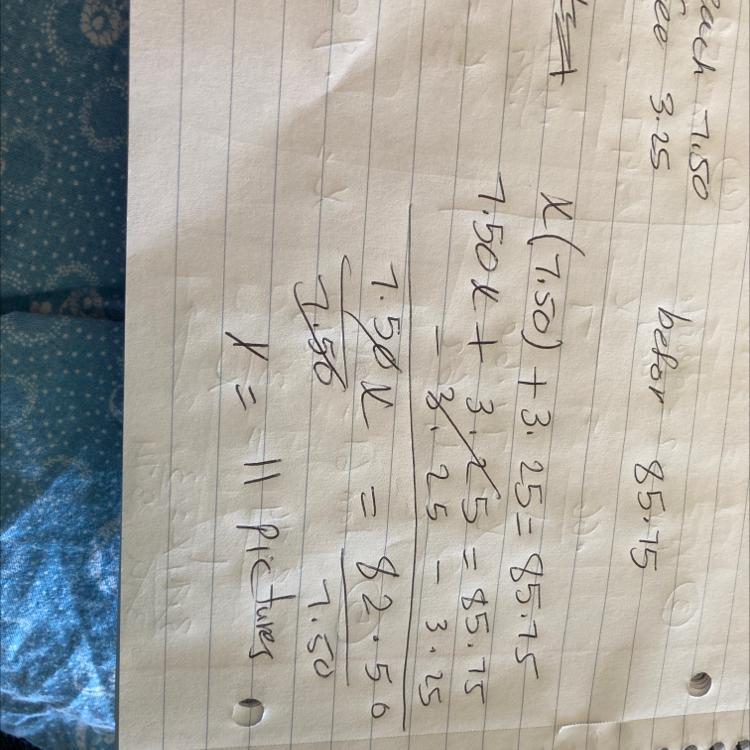 each 7.50
fee 3.25
befor 85.75
x(7.50) + 3.25 = 85.75
7.50x + 3.25 = 85.75
- 3.25 - 3.25
7.50x = 82.50
7.50 7.50
x = 11 pictures